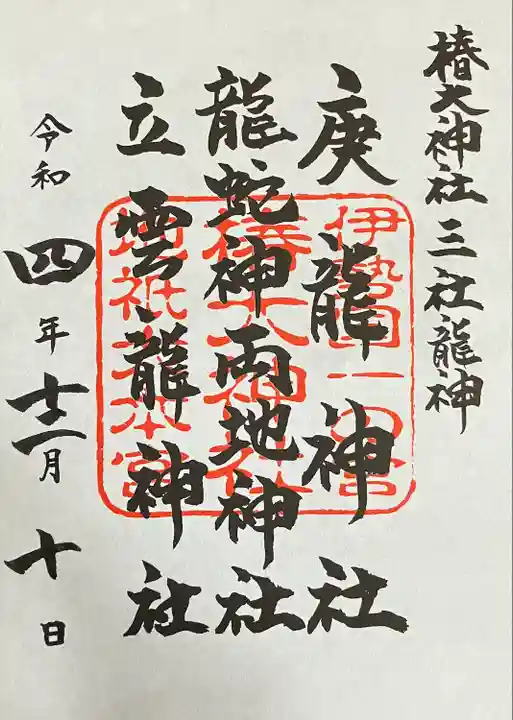 椿大神社三社龍神
庚龍神社
龍蛇神両地神社
立雲龍神社
伊勢国一の宮
椿大神社
地祇大本宮
令和四年十二月十日